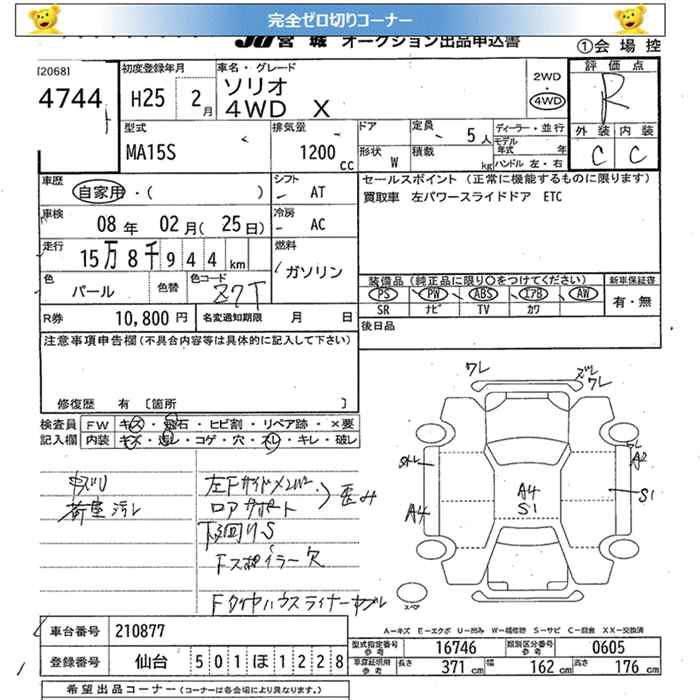 完全ゼロ切りコーナー
JU宮城 オークション出品申込書 ①会場控
[2068] 初度登録年月 車名・グレード 2WD 評価点
4744 H25 2月 ソリオ 4WD R
4WD X 外装 内装
型式 排気量 ドア 定員 5人 ディーラー・並行 C C
MA15S 1200cc 形状 W 積載 kg モデル年式 年 ハンドル 左・右
車歴 自家用・( ) シフト AT セールスポイント (正常に機能するものに限ります)
車検 08年 02月(25日) 冷房 AC 買取車 左パワースライドドア ETC
走行 15万8千944km 燃料 ガソリン
色 パール 色替 色コード Z7T 装備品 (純正品に限り○をつけてください) 新車保証書
PS PW ABS エアB AW 有・無
SR ナビ TV カワ
R券 10,800円 名変通知期限 月 日 後日品
注意事項申告欄(不具合内容等は具体的に記入して下さい)
修復歴 有 〔箇所 〕
検査員 FW キズ・飛石・ヒビ割・リペア跡・×要
記入欄 内装 キズ・汚レ・コゲ・穴・スレ・キレ・破レ
ワレ ズレ ワレ
ワレ A2
A4 S1
A4 S1
荷室汚レ
左Fサイドメンバー 歪み
ロアサポート
下廻りS
Fスポイラー欠
Fタイヤハウスライナー
スペア
A-キズ E-エクボ U-凹み W-補修跡 S-サビ C-腐食 XX-交換済
車台番号 210877
登録番号 仙台 501ほ1228
型式指定番号参考 16746 類別区分番号参考 0605
車庫証明用参考 長さ 371cm 幅 162cm 高さ 176cm
希望出品コーナー (コーナーは各会場により異なります。)